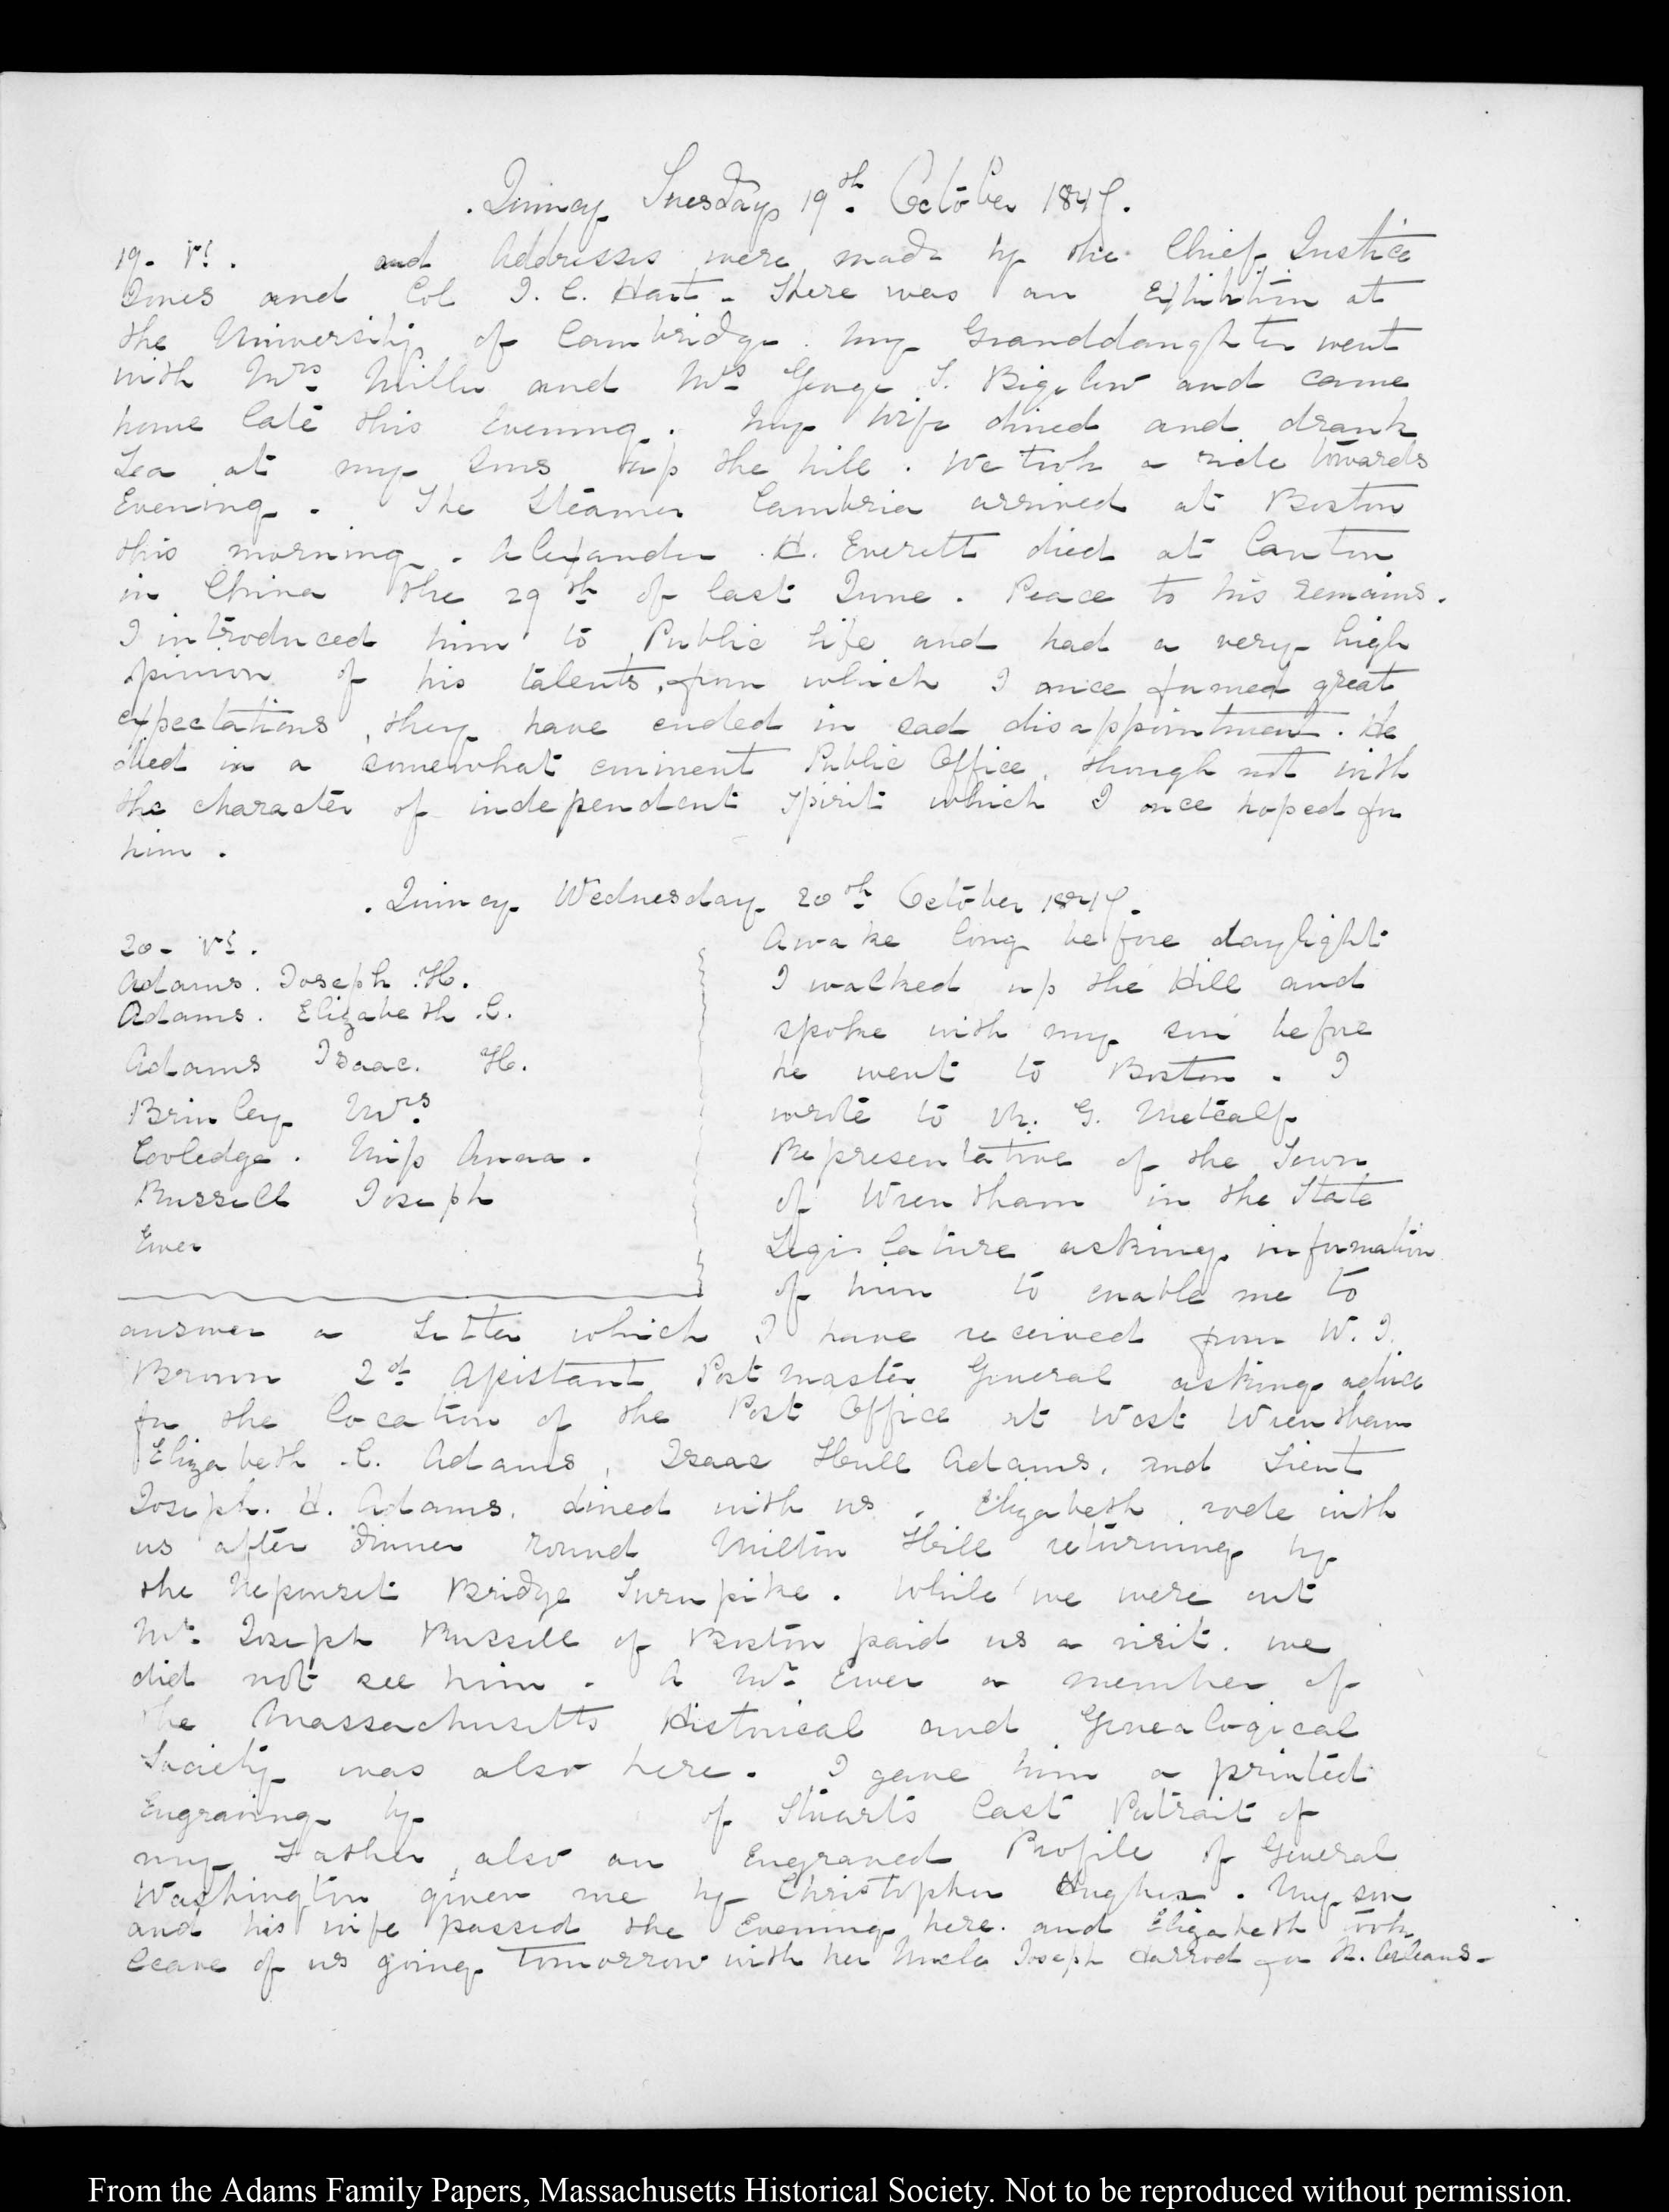 . Quincy Tuesday 19th October 1847.
19. V:. and Addresses were made by the Chief Justice
Jones and Col J. C. Hart. There was an Exhibition at
the University of Cambridge. my Granddaughter went
with Mrs Miller and Mrs George T. Bigelow and came
home late this Evening. My Wife dined and drank
Tea at my Sons up the hill. We took a ride towards
Evening. The Steamer Cambria arrived at Boston
this morning. Alexander H. Everett died at Canton
in China the 29th of last June. Peace to his remains.
I introduced him to Public life and had a very high
opinion of his talents, from which I once formed great
expectations, they have ended in sad disappointment. He
died in a somewhat eminent Public Office, though not with
the character of independent spirit which I once hoped for
him.
. Quincy Wednesday 20th October 1847.
20. V:.
Adams. Joseph. H.
Adams. Elizabeth. C.
Adams Isaac. H.
Brinley Mrs
Cooledge. Miss Anna.
Russell Joseph
Ewer
Awake long before daylight
I walked up the Hill and
spoke with my son before
he went to Boston. I
wrote to M. G. Metcalf
Representative of the Town
of Wrentham in the State
Legislature asking information
of him to enable me to
answer a Letter which I have received from W. J.
Brown 2d Assistant Post Master General asking advice
for the location of the Post Office at West Wrentham
Elizabeth. C. Adams, Isaac Hull Adams, and Lieut
Joseph. H. Adams, dined with us. Elizabeth rode with
us after dinner round Milton Hill returning by
the Neponset Bridge Turnpike. While we were out
Mr. Joseph Russell of Boston paid us a visit. we
did not see him. A Mr Ewer a member of
the Massachusetts Historical and Genealogical
Society was also here. I gave him a printed
Engraving by of Stuarts last Potrait of
my Father, also an Engraved Profile of General
Washington given me by Christopher Hughes. My son
and his wife passed the Evening here. and Elizabeth took
leave of us going tomorrow with her Uncle Joseph Harrod for N. Orleans.
From the Adams Family Papers, Massachusetts Historical Society. Not to be reproduced without permission.